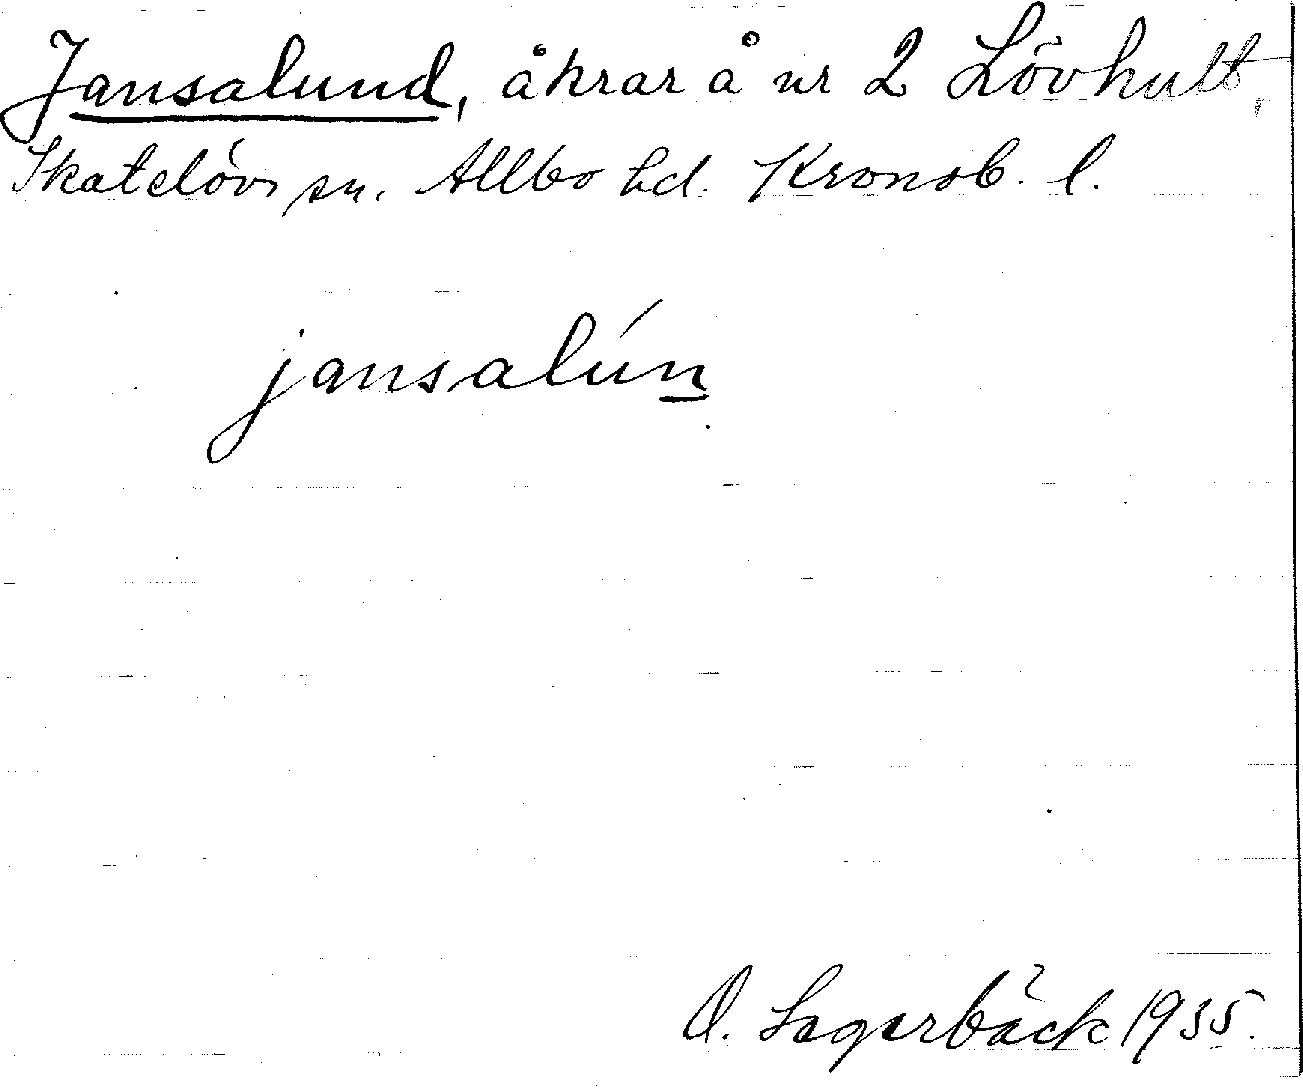 Jansalund, åkrar å nr 2 Lövhult,
Skatelövs sn. Allbo hd. Kronob. l.
jansalún
O. Lagerbäck 1935.